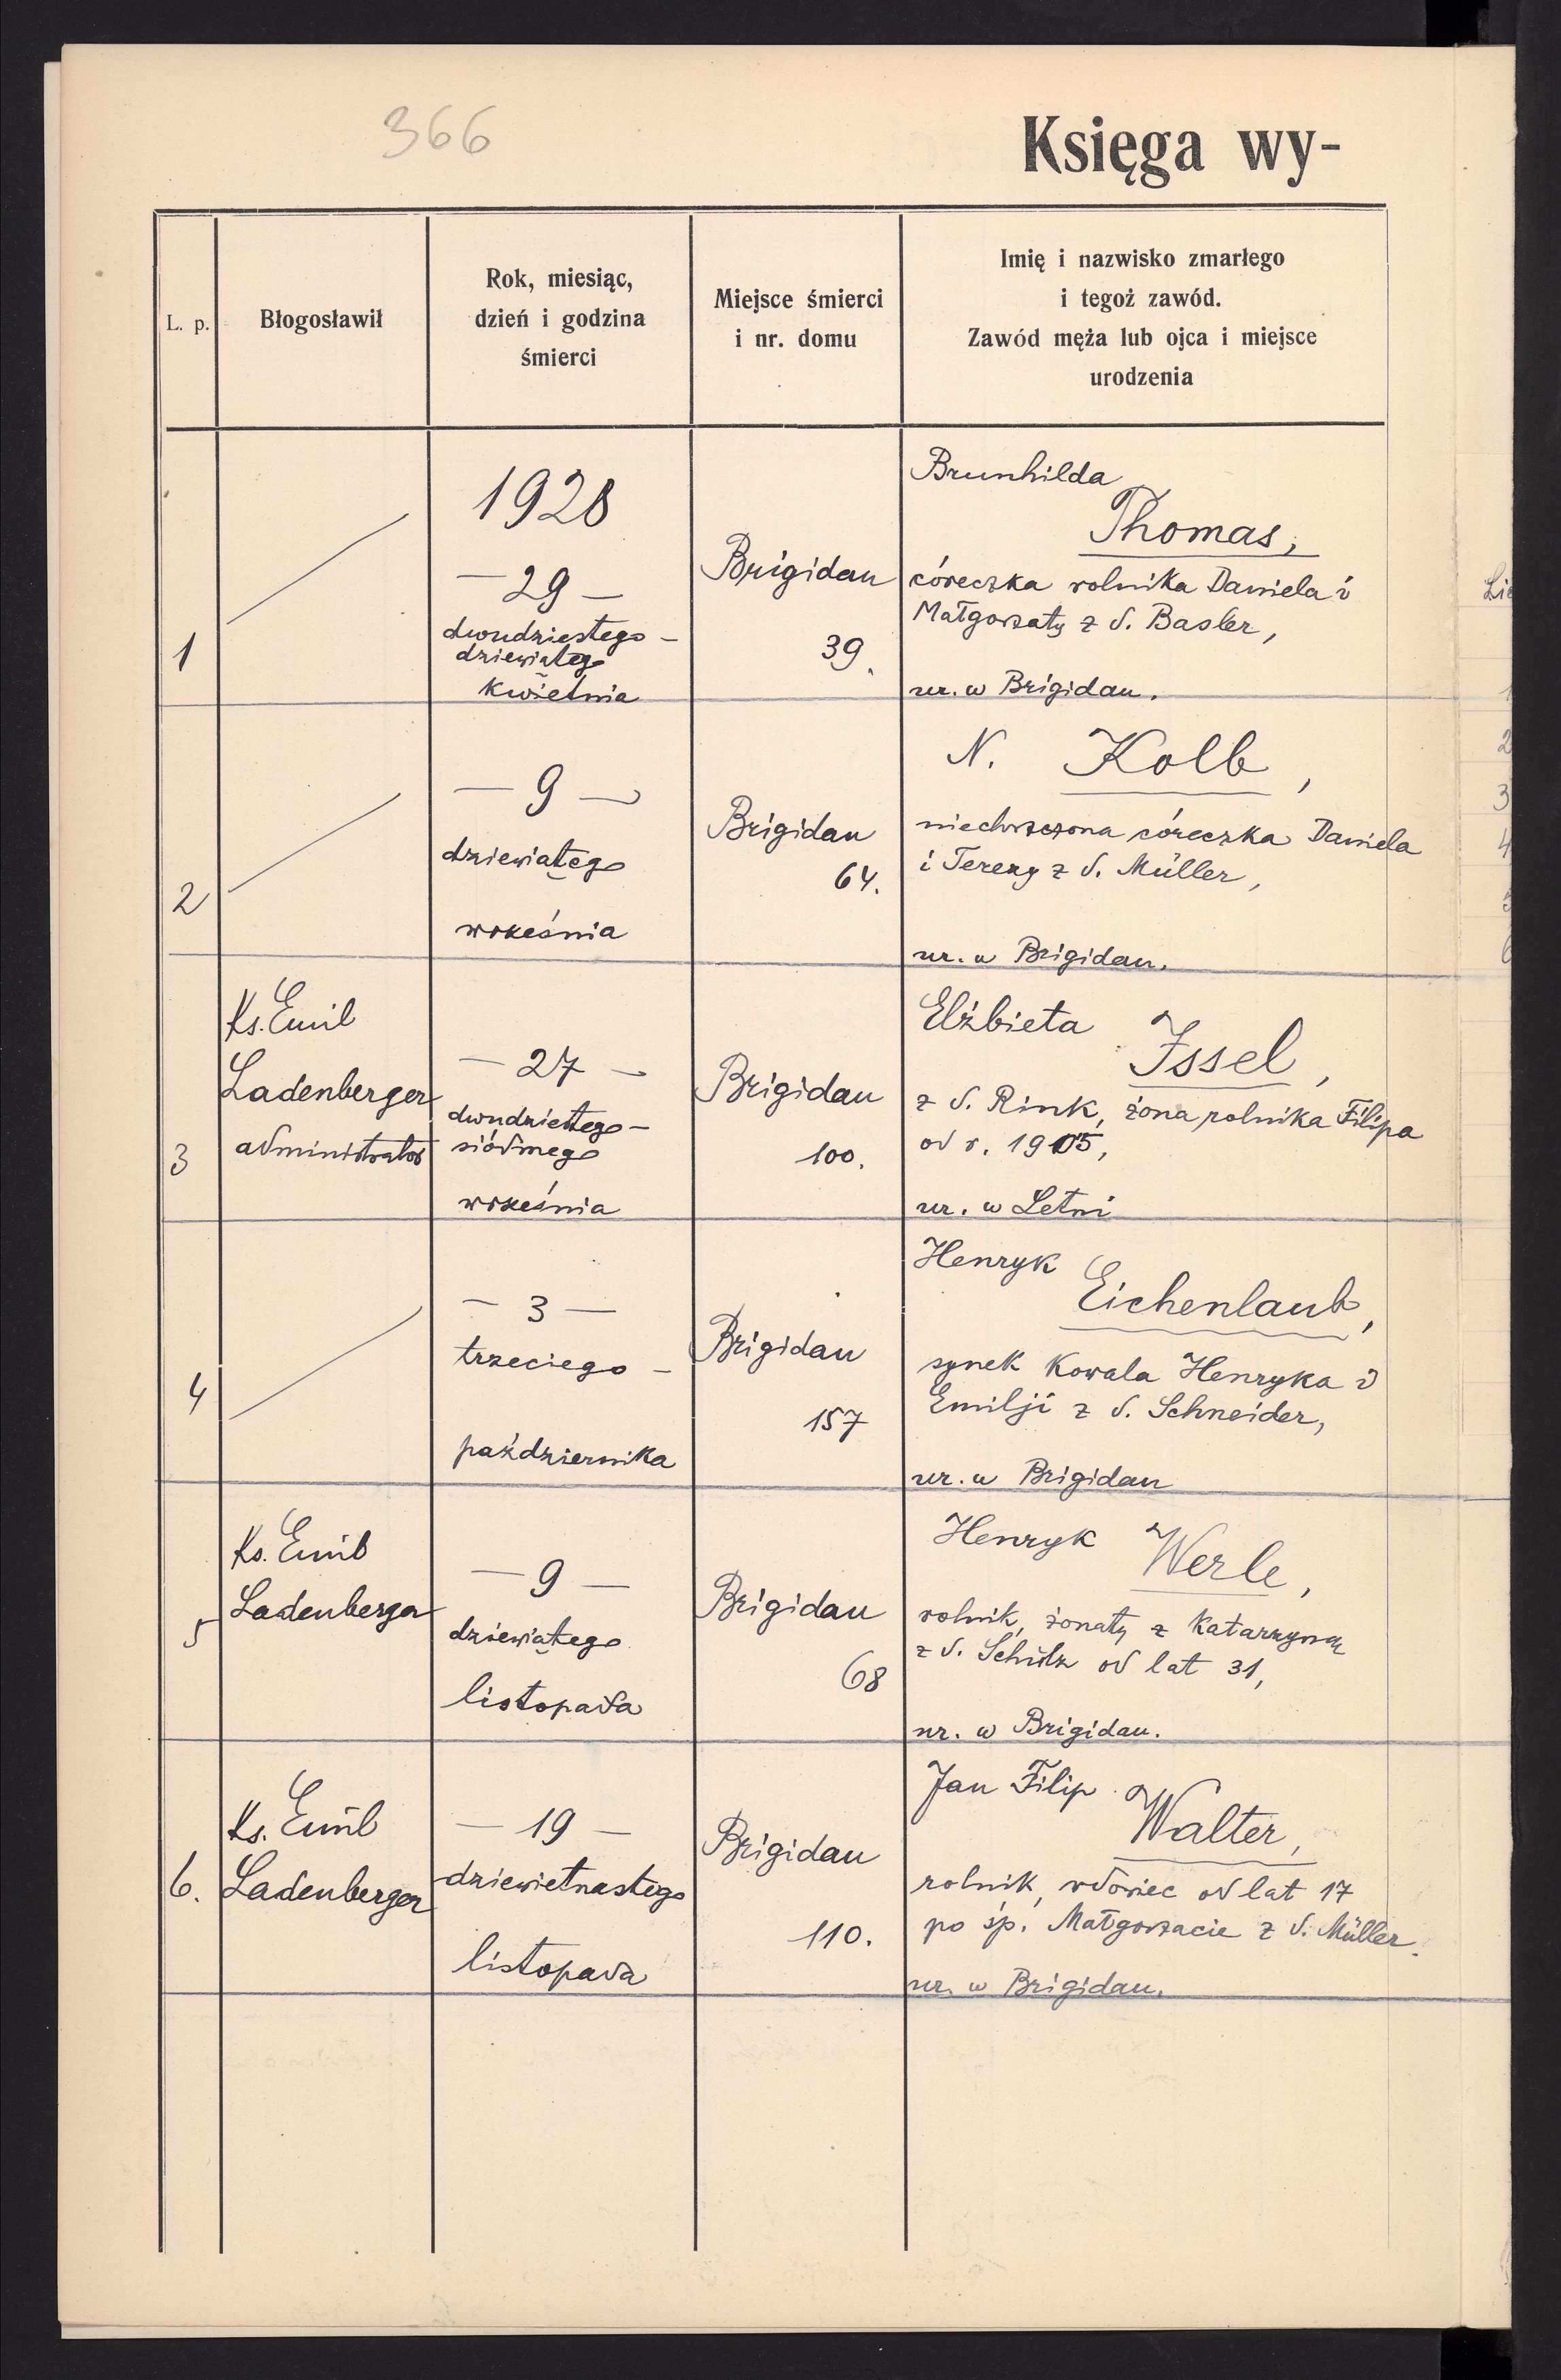 366
Księga wy-
L. p.
Błogosławił
Rok, miesiąc,
dzień i godzina
śmierci
Miejsce śmierci
i nr. domu
Imię i nazwisko zmarłego
i tegoż zawód.
Zawód męża lub ojca i miejsce
urodzenia
1
1928
— 29 —
dwudziestego —
dziewiątego
kwietnia
Brigidau
39.
Brunhilda
Thomas,
córeczka rolnika Daniela i
Małgorzaty z d. Basler,
ur. w Brigidau.
2
— 9 —
dziewiątego
września
Brigidau
64.
N. Kolb,
niechrzczona córeczka Daniela
i Terezy z d. Müller,
ur. w Brigidau.
3
Ks. Emil
Ladenberger
administrator
— 27 —
dwudziestego —
siódmego
września
Brigidau
100.
Elżbieta
Issel,
z d. Rink, żona rolnika Filipa
od r. 1905,
ur. w Letni
4
— 3 —
trzeciego —
października
Brigidau
157
Henryk
Eichenlaub,
synek kowala Henryka i
Emilji z d. Schneider,
ur. w Brigidau
5
Ks. Emil
Ladenberger
— 9 —
dziewiątego
listopada
Brigidau
68
Henryk Werle,
rolnik, żonaty z Katarzyną
z d. Schulz od lat 31,
ur. w Brigidau.
6.
Ks. Emil
Ladenberger
— 19 —
dziewietnastego
listopada
Brigidau
110.
Jan Filip
Walter,
rolnik, wdowiec od lat 17
po śp. Małgorzacie z d. Müller.
ur. w Brigidau.